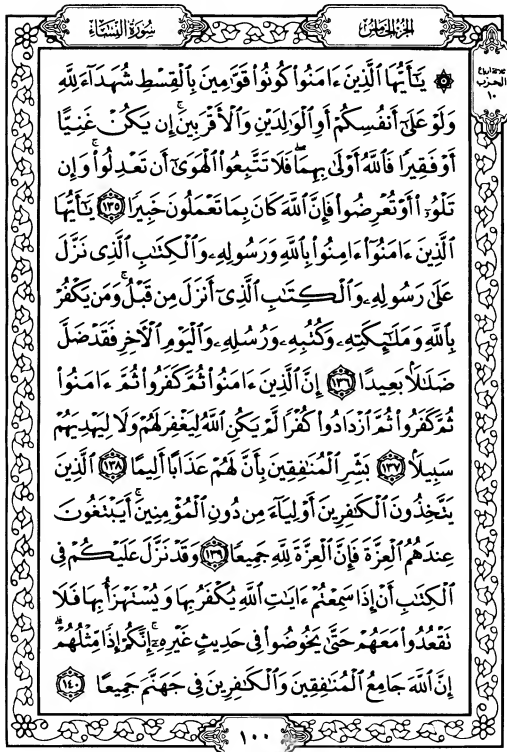 سُورَةُ النِّسَاء
الجُزْءُ الخَامِسُ
ثلاثة أرباع
الحزب
١٠
۞ يَٰٓأَيُّهَا ٱلَّذِينَ ءَامَنُوا۟ كُونُوا۟ قَوَّٰمِينَ بِٱلْقِسْطِ شُهَدَآءَ لِلَّهِ
وَلَوْ عَلَىٰٓ أَنفُسِكُمْ أَوِ ٱلْوَٰلِدَيْنِ وَٱلْأَقْرَبِينَ ۚ إِن يَكُنْ غَنِيًّا
أَوْ فَقِيرًا فَٱللَّهُ أَوْلَىٰ بِهِمَا ۖ فَلَا تَتَّبِعُوا۟ ٱلْهَوَىٰٓ أَن تَعْدِلُوا۟ ۚ وَإِن
تَلْوُۥٓا۟ أَوْ تُعْرِضُوا۟ فَإِنَّ ٱللَّهَ كَانَ بِمَا تَعْمَلُونَ خَبِيرًا ١٣٥ يَٰٓأَيُّهَا
ٱلَّذِينَ ءَامَنُوٓا۟ ءَامِنُوا۟ بِٱللَّهِ وَرَسُولِهِۦ وَٱلْكِتَٰبِ ٱلَّذِى نَزَّلَ
عَلَىٰ رَسُولِهِۦ وَٱلْكِتَٰبِ ٱلَّذِىٓ أَنزَلَ مِن قَبْلُ ۚ وَمَن يَكْفُرْ
بِٱللَّهِ وَمَلَٰٓئِكَتِهِۦ وَكُتُبِهِۦ وَرُسُلِهِۦ وَٱلْيَوْمِ ٱلْءَاخِرِ فَقَدْ ضَلَّ
ضَلَٰلًۢا بَعِيدًا ١٣٦ إِنَّ ٱلَّذِينَ ءَامَنُوا۟ ثُمَّ كَفَرُوا۟ ثُمَّ ءَامَنُوا۟
ثُمَّ كَفَرُوا۟ ثُمَّ ٱزْدَادُوا۟ كُفْرًا لَّمْ يَكُنِ ٱللَّهُ لِيَغْفِرَ لَهُمْ وَلَا لِيَهْدِيَهُمْ
سَبِيلًۢا ١٣٧ بَشِّرِ ٱلْمُنَٰفِقِينَ بِأَنَّ لَهُمْ عَذَابًا أَلِيمًا ١٣٨ ٱلَّذِينَ
يَتَّخِذُونَ ٱلْكَٰفِرِينَ أَوْلِيَآءَ مِن دُونِ ٱلْمُؤْمِنِينَ ۚ أَيَبْتَغُونَ
عِندَهُمُ ٱلْعِزَّةَ فَإِنَّ ٱلْعِزَّةَ لِلَّهِ جَمِيعًا ١٣٩ وَقَدْ نَزَّلَ عَلَيْكُمْ فِى
ٱلْكِتَٰبِ أَنْ إِذَا سَمِعْتُمْ ءَايَٰتِ ٱللَّهِ يُكْفَرُ بِهَا وَيُسْتَهْزَأُ بِهَا فَلَا
تَقْعُدُوا۟ مَعَهُمْ حَتَّىٰ يَخُوضُوا۟ فِى حَدِيثٍ غَيْرِهِۦٓ ۚ إِنَّكُمْ إِذًا مِّثْلُهُمْ ۗ
إِنَّ ٱللَّهَ جَامِعُ ٱلْمُنَٰفِقِينَ وَٱلْكَٰفِرِينَ فِى جَهَنَّمَ جَمِيعًا ١٤٠
١٠٠